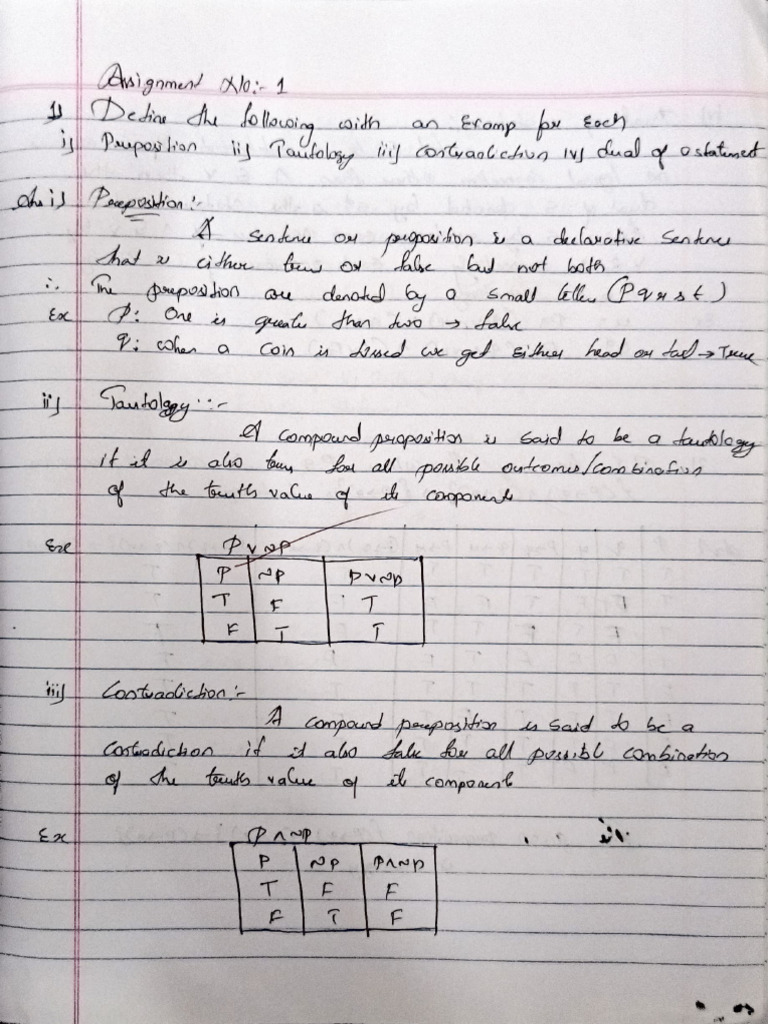 Assignment No:- 1
1) Define the following with an Examp for Each
i) Preposition ii) Tautology iii) contradiction iv) dual of a statement
Ans i) Preposition:-
A sentence or proposition is a declarative sentence
that is either true or false but not both
∴ The preposition are denoted by a small letter (P q r s t)
Ex P: One is greater than two → false
q: when a coin is tossed we get either head or tail → True
ii) Tautology :-
A compound proposition is said to be a tautology
if it is also true for all possible outcomes/combination
of the truth value of its components
Ex P∨~P
P ~P P∨~P
T F T
F T T
iii) Contradiction:-
A compound preposition is said to be a
contradiction if it also false for all possible combination
of the truth value of its component
Ex P∧~P
P ~P P∧~P
T F F
F T F